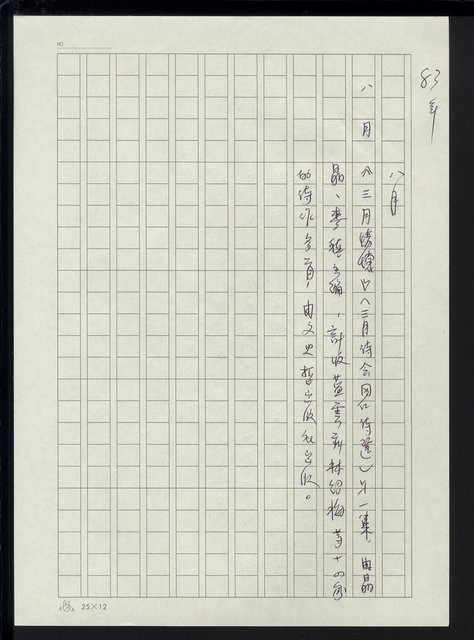 NO.
83年
八月
八月 《三月情懷》(三月詩會同仁詩選)第一集,由晶
晶、麥穗主編,計收藍雲、劉、林紹梅等十四家
的詩作 百首,由文史哲出版社出版。
25×12